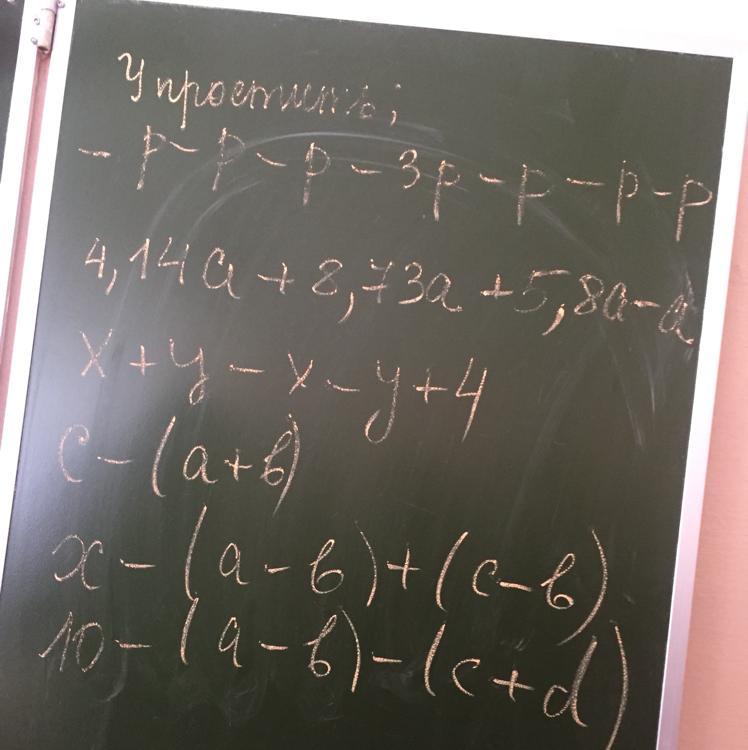 Упростить;
- p - p - p - 3p - p - p - p
4,14a + 8,73a + 5,8a - a
x + y - x - y + 4
c - (a + b)
x - (a - b) + (c - b)
10 - (a - b) - (c + d)